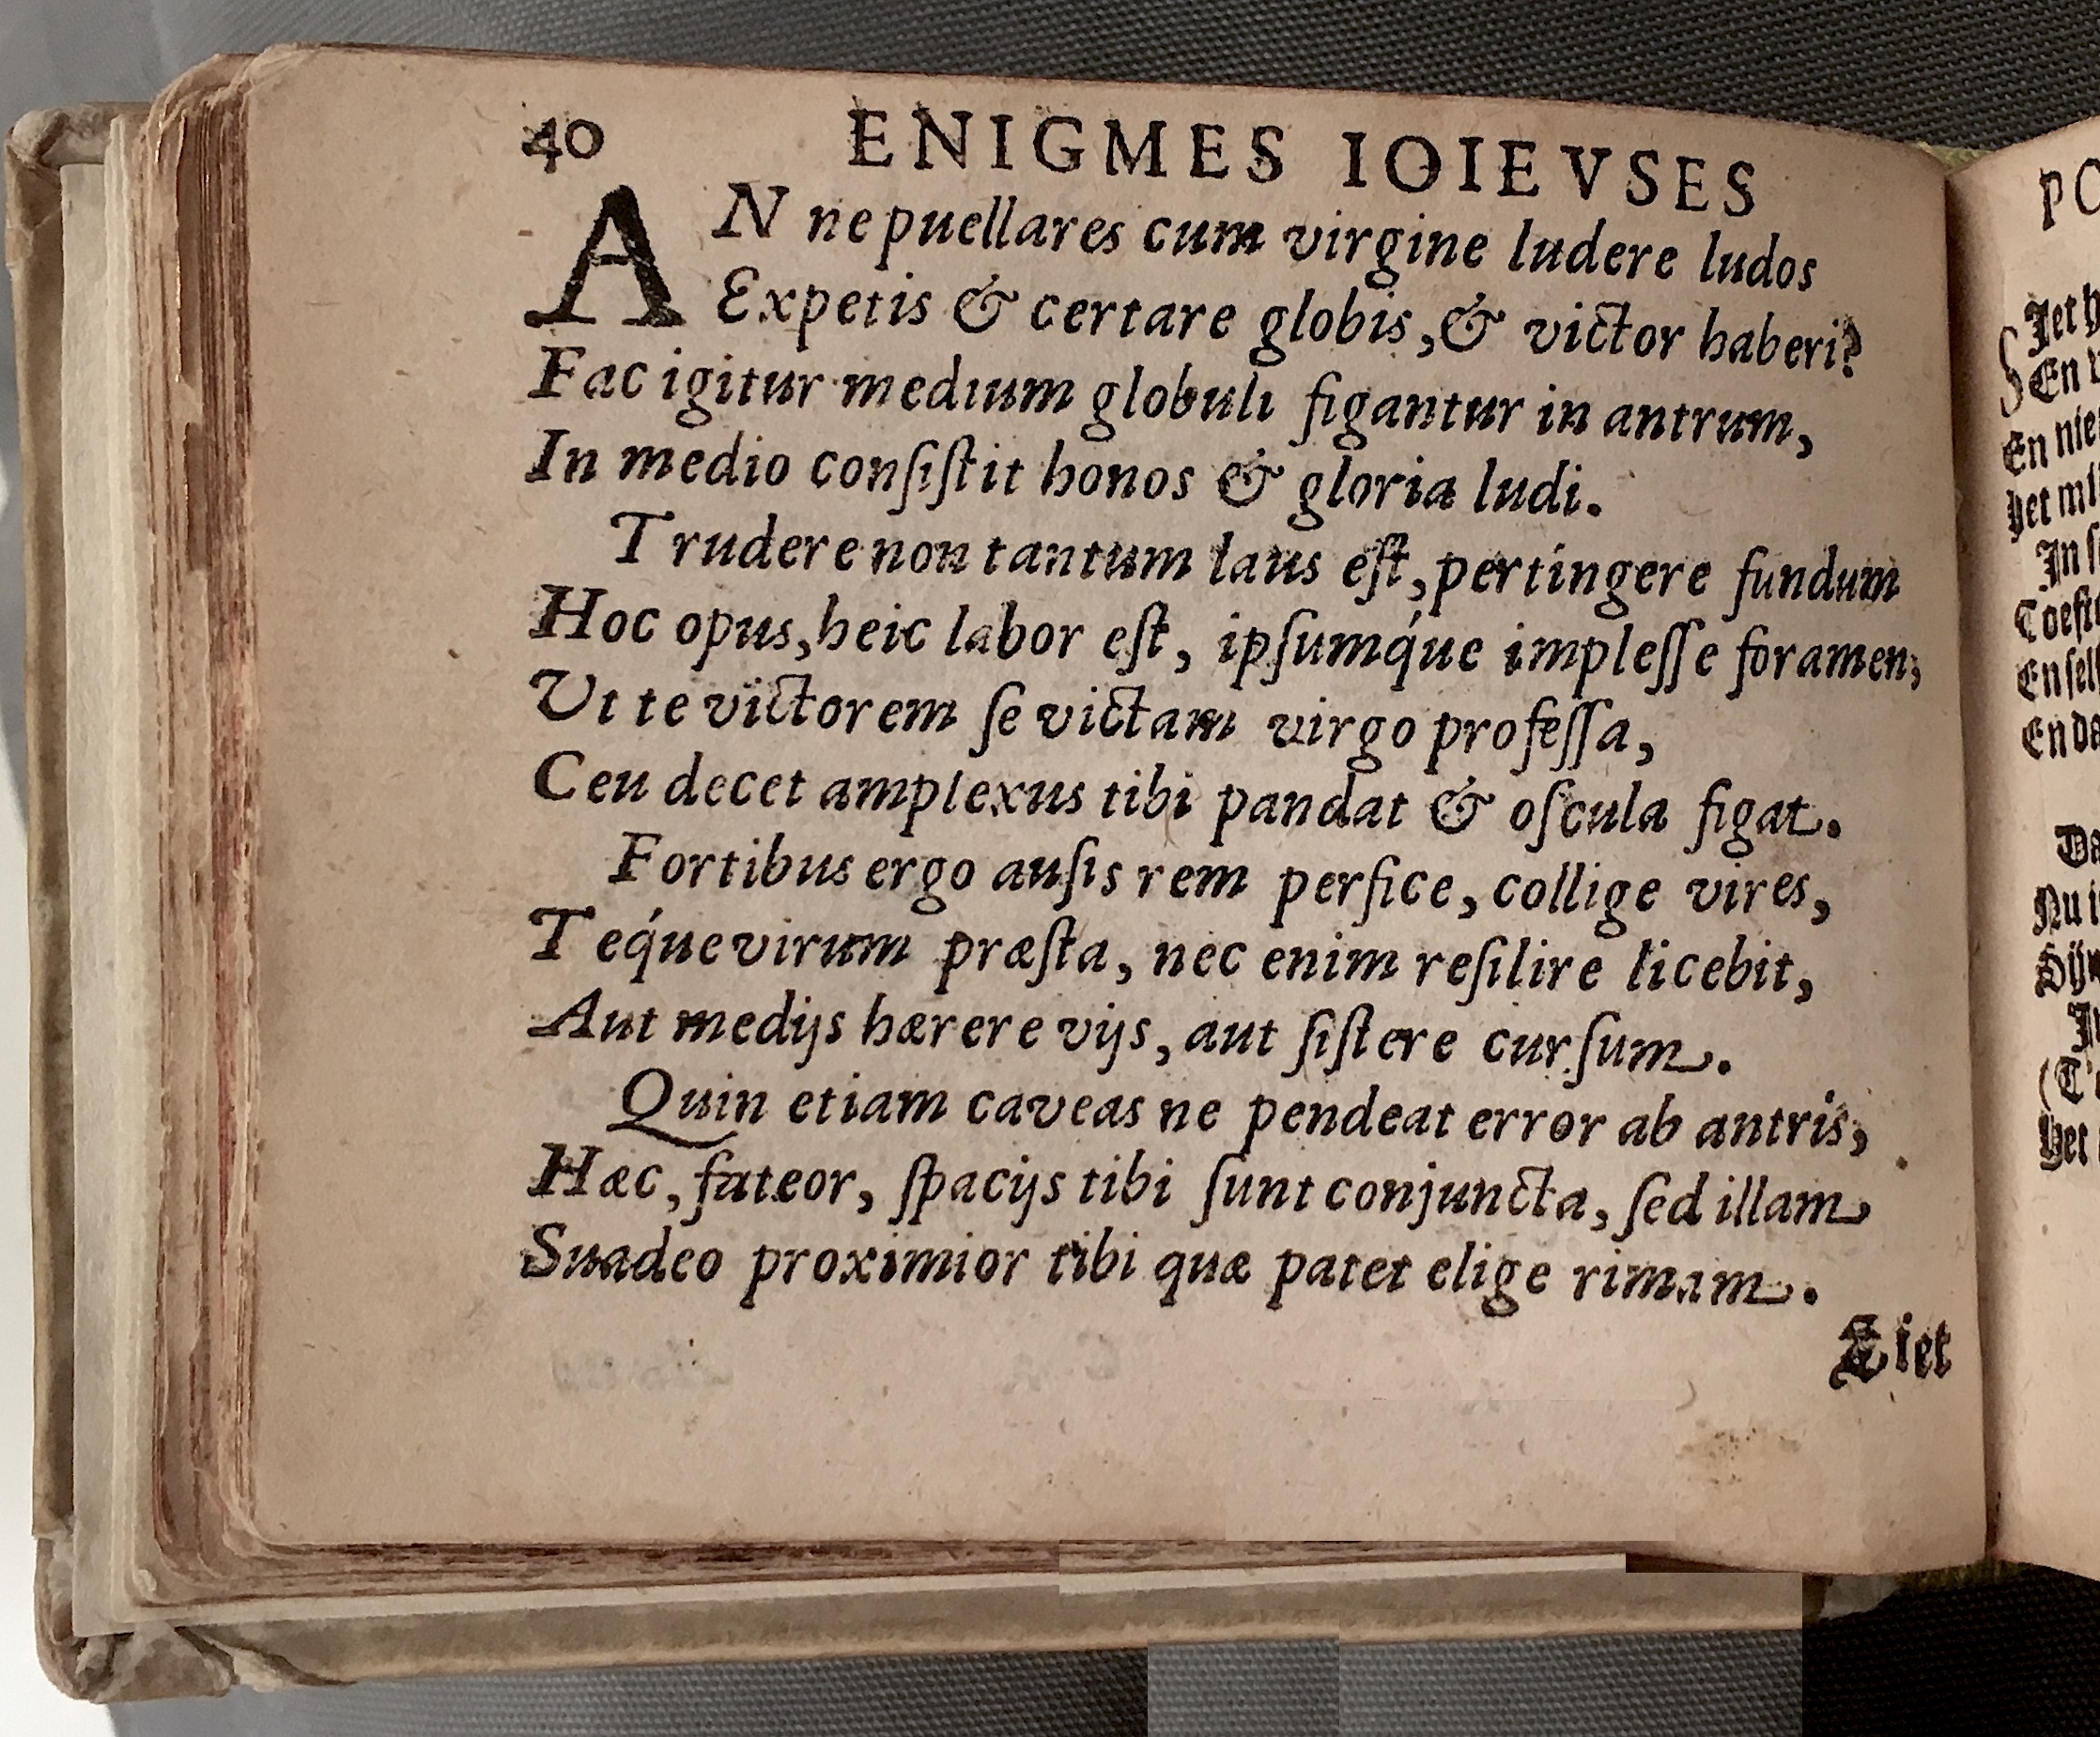 40 ENIGMES IOIEVSES
AN ne puellares cum virgine ludere ludos
Expetis & certare globis, & victor haberi?
Fac igitur medium globuli figantur in antrum,
In medio conſiſtit honos & gloria ludi.
Trudere non tantum laus eſt, pertingere fundum
Hoc opus, heic labor eſt, ipſumq́ue impleſſe foramen,
Ut te victorem ſe victam virgo profeſſa,
Ceu decet amplexus tibi pandat & oſcula figat.
Fortibus ergo auſis rem perfice, collige vires,
Teq́ue virum præſta, nec enim reſilire licebit,
Aut medijs hærere vijs, aut ſiſtere curſum.
Quin etiam caveas ne pendeat error ab antris,
Hæc, fateor, ſpacijs tibi ſunt conjuncta, ſed illam
Suadeo proximior tibi quæ patet elige rimam.
Siet
PO
En
En
Het
In
En
En
Nu
Het